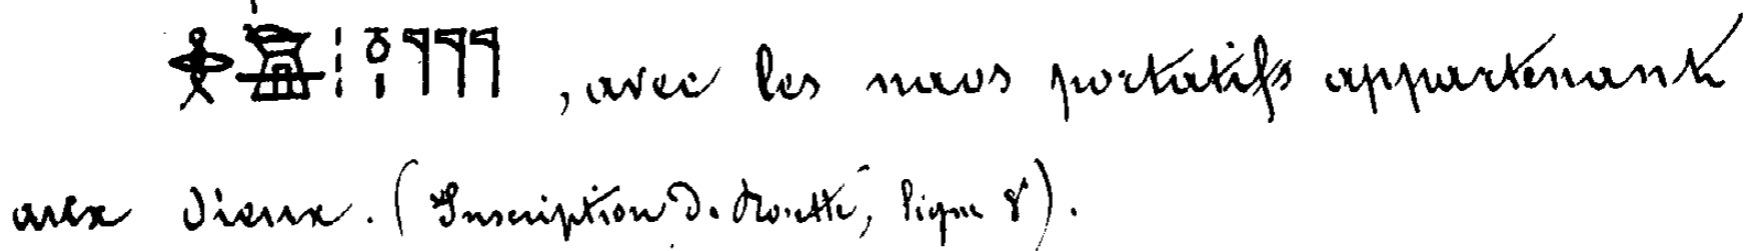 , avec les naos portatifs appartenant
aux dieux. (Inscription de Rosette, ligne 8).